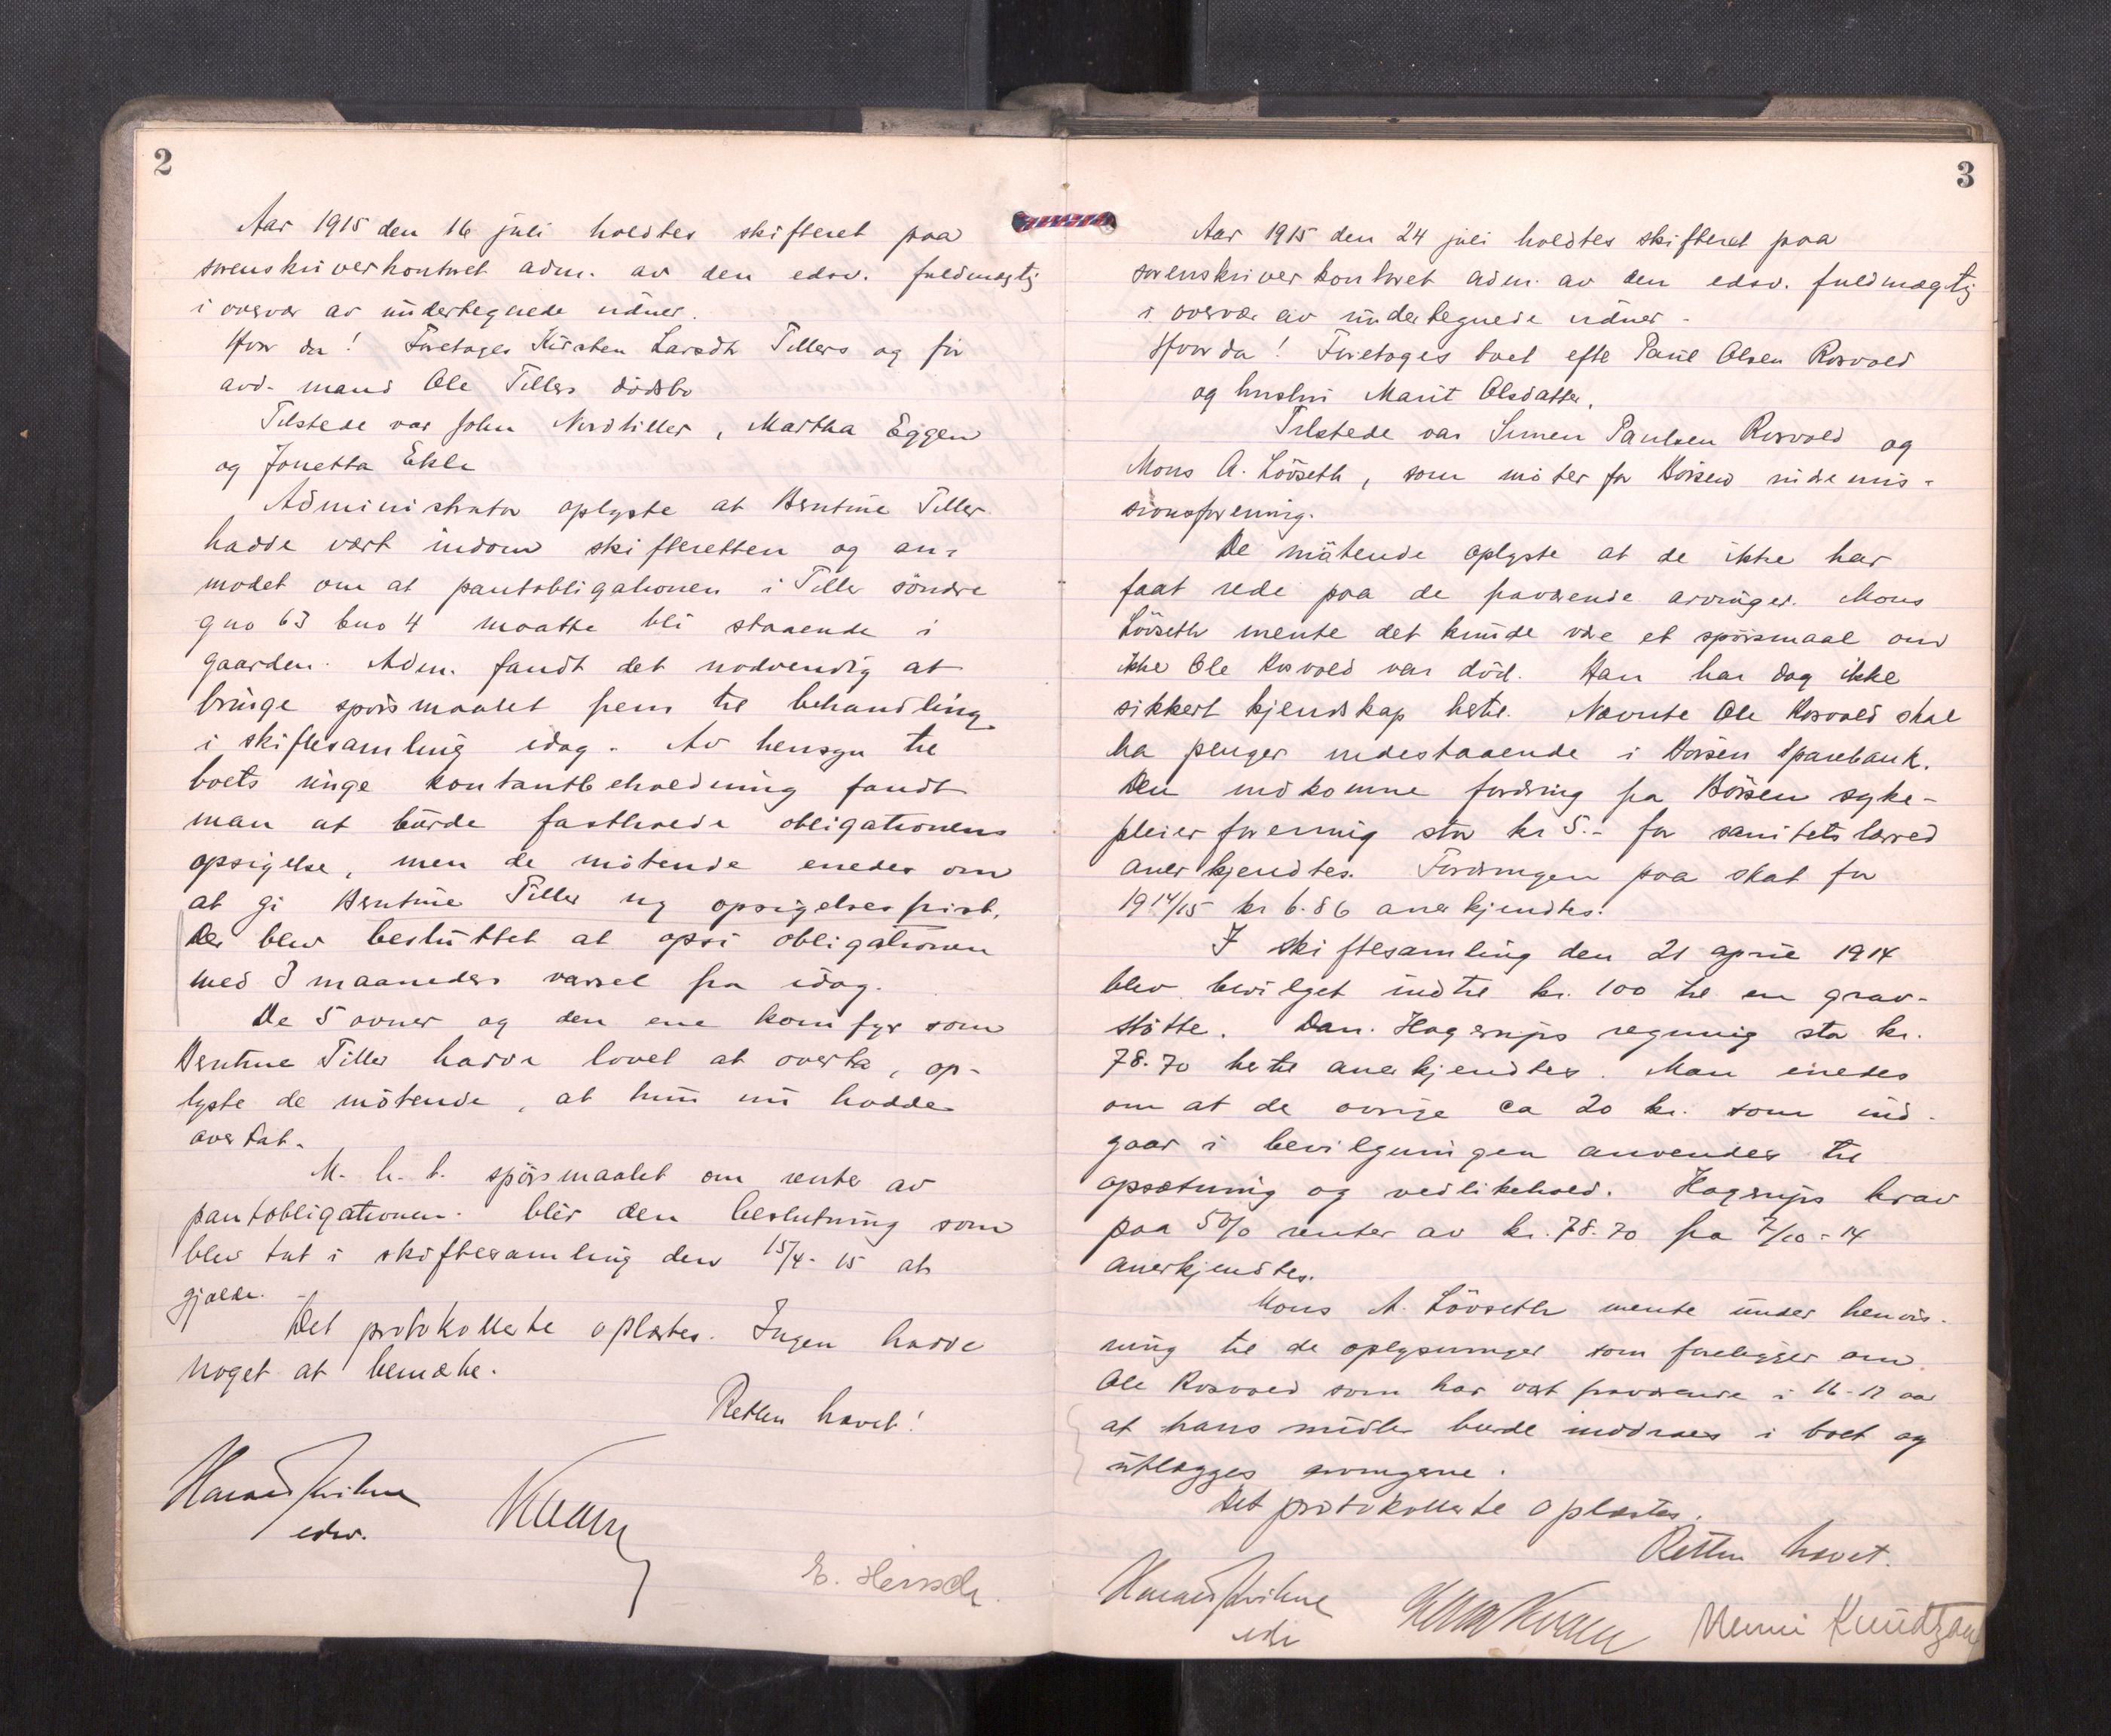 2
Aar 1915 den 16 juli holdtes skifteret paa
sorenskriverkontoret adm. av den edsv. fuldmægtig
i overvær av undertegnede vidner.
Hvor da! Foretages Kirsten Larsdtr Tillers og før
avd. mand Ole Tillers dødsbo
Tilstede var John Nordtiller, Martha Eggen
og Jonetta Ekle
Administrator oplyste at Berntine Tiller
hadde vært indom skifteretten og an-
modet om at pantobligationen i Tiller söndre
gno 63 bno 4 maatte bli staaende i
gaarden. Adm. fandt det nødvendig at
bringe spörsmaalet frem til behandling
i skiftesamling idag. Av hensyn til
boets ringe kontantbeholdning fandt
man at burde fastholde obligationens
opsigelse, men de mötende enedes om
at gi Berntine Tiller ny opsigelsesfrist.
Der blev besluttet at opsi obligationen
med 3 maaneders varsel fra idag.
De 5 ovner og den ene komfyr som
Berntine Tiller hadde lovet at overta, op-
lyste de mötende, at hun nu hadde
overtat.
M. h. t. spörsmaalet om renter av
pantobligationen. blir den beslutning som
blev tat i skiftesamling den 15/4-15 at
gjælde.
Det protokollerte oplæstes. Ingen hadde
noget at bemerke.
Retten hævet!
edsv.
E. Hirsch.
3
Aar 1915 den 24 juli holdtes skifteret paa
sorenskriverkontoret adm. av den edsv. fuldmægtig
i overvær av undertegnede vidner.
Hvor da! Foretages boet efter Paul Olsen Rosvold
og hustru Marit Olsdatter.
Tilstede var Simen Paulsen Rosvold og
Mons A. Lövseth, som möter for Börsen indremis-
sionsforening.
De mötende oplyste at de ikke har
faat rede paa de fraværende arvinger. Mons
Lövseth mente det kunde være et spörsmaal om
ikke Ole Rosvold var död. Han har dog ikke
sikkert kjendskap hertil. Nævnte Ole Rosvold skal
ha penger indestaaende i Börsen Sparebank.
Den indkomne fordring fra Börsen syke-
pleierforening stor kr 5.- for sanitetslærred
anerkjendtes. Fordringen paa skat for
1914/15 kr 6.86 anerkjendtes.
I skiftesamling den 21 april 1914
blev bevilget indtil kr. 100 til en grav-
stötte. Dan. Hagerups regning stor kr.
78.70 hertil anerkjendtes. Man enedes
om at de øvrige ca 20 kr. som ind-
gaar i bevilgningen anvendes til
opsætning og vedlikehold. Hagerups krav
paa 5% renter av kr. 78.70 fra 7/10-14
anerkjendtes.
Mons A. Lövseth mente under henvis-
ning til de oplysninger som foreligger om
Ole Rosvold som har vært fraværende i 16-17 aar
at hans midler burde inddraes i boet og
utlægges arvingerne.
Det protokollerte oplæstes.
Retten hævet.
edsv
Knudtzon